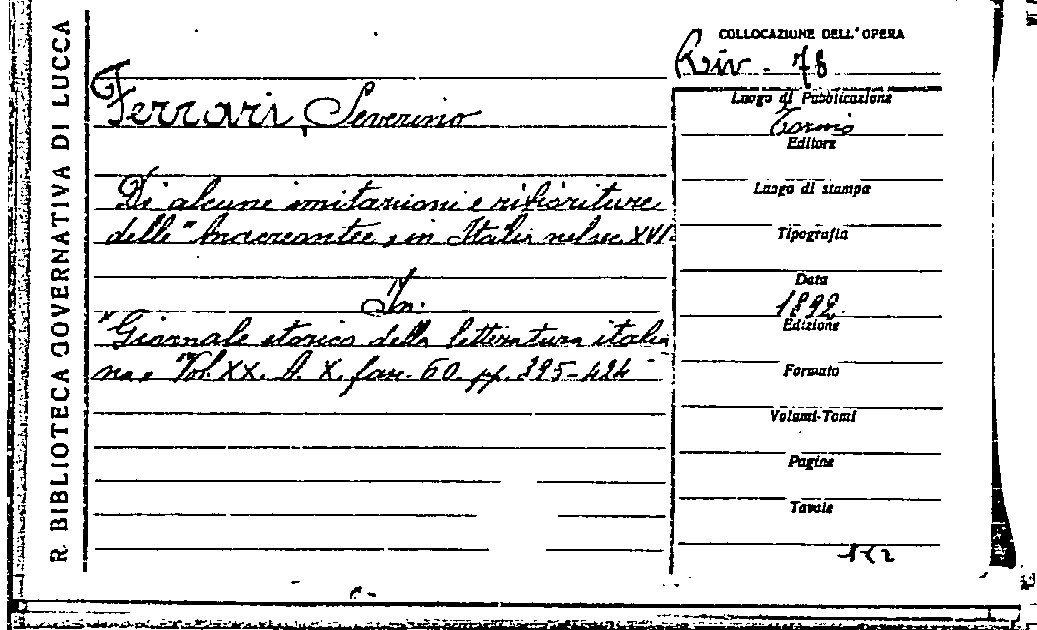 R. BIBLIOTECA GOVERNATIVA DI LUCCA
COLLOCAZIONE DELL'OPERA
Riv. 78
Ferrari, Severino
Di alcune imitazioni e rifioriture
delle "Anacreontee" in Italia nel sec XVI.
In:
"Giornale storico della letteratura italia
na" Vol. XX. A. X. fasc. 60. pp. 395-424
Luogo di Pubblicazione
Torino
Editore
Luogo di stampa
Tipografia
Data
1892.
Edizione
Formato
Volumi-Tomi
Pagine
Tavole